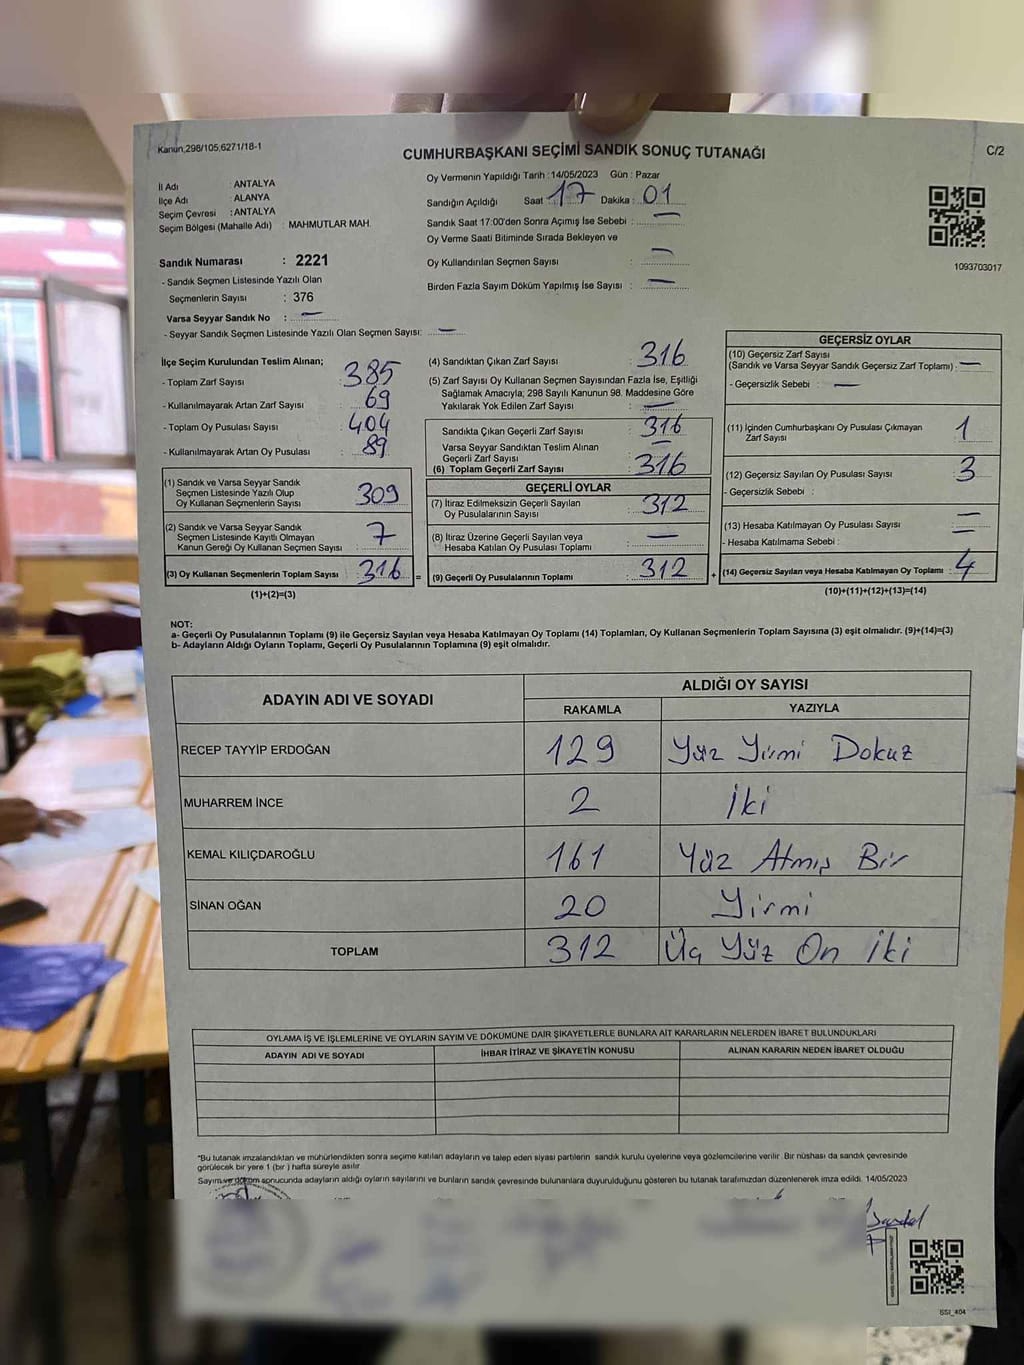 Kanun,298/105,6271/18-1
CUMHURBAŞKANI SEÇİMİ SANDIK SONUÇ TUTANAĞI
C/2
İl Adı : ANTALYA
İlçe Adı : ALANYA
Seçim Çevresi : ANTALYA
Seçim Bölgesi (Mahalle Adı) : MAHMUTLAR MAH.
Sandık Numarası : 2221
- Sandık Seçmen Listesinde Yazılı Olan
Seçmenlerin Sayısı : 376
Varsa Seyyar Sandık No : —
- Seyyar Sandık Seçmen Listesinde Yazılı Olan Seçmen Sayısı: —
Oy Vermenin Yapıldığı Tarih : 14/05/2023 Gün : Pazar
Sandığın Açıldığı Saat : 17 Dakika : 01
Sandık Saat 17:00'den Sonra Açımış İse Sebebi : —
Oy Verme Saati Bitiminde Sırada Bekleyen ve
Oy Kullandırılan Seçmen Sayısı : —
Birden Fazla Sayım Döküm Yapılmış İse Sayısı : —
1093703017
İlçe Seçim Kurulundan Teslim Alınan;
- Toplam Zarf Sayısı : 385
- Kullanılmayarak Artan Zarf Sayısı : 69
- Toplam Oy Pusulası Sayısı : 404
- Kullanılmayarak Artan Oy Pusulası : 89
(1) Sandık ve Varsa Seyyar Sandık
Seçmen Listesinde Yazılı Olup
Oy Kullanan Seçmenlerin Sayısı : 309
(2) Sandık ve Varsa Seyyar Sandık
Seçmen Listesinde Kayıtlı Olmayan
Kanun Gereği Oy Kullanan Seçmen Sayısı : 7
(3) Oy Kullanan Seçmenlerin Toplam Sayısı : 316
(1)+(2)=(3)
(4) Sandıktan Çıkan Zarf Sayısı : 316
(5) Zarf Sayısı Oy Kullanan Seçmen Sayısından Fazla İse, Eşitliği
Sağlamak Amacıyla, 298 Sayılı Kanunun 98. Maddesine Göre
Yakılarak Yok Edilen Zarf Sayısı : —
Sandıkta Çıkan Geçerli Zarf Sayısı : 316
Varsa Seyyar Sandıktan Teslim Alınan
Geçerli Zarf Sayısı : —
(6) Toplam Geçerli Zarf Sayısı : 316
GEÇERLİ OYLAR
(7) İtiraz Edilmeksizin Geçerli Sayılan
Oy Pusulalarının Sayısı : 312
(8) İtiraz Üzerine Geçerli Sayılan veya
Hesaba Katılan Oy Pusulası Toplamı : —
= (9) Geçerli Oy Pusulalarının Toplamı : 312 +
GEÇERSİZ OYLAR
(10) Geçersiz Zarf Sayısı
(Sandık ve Varsa Seyyar Sandık Geçersiz Zarf Toplamı) : —
- Geçersizlik Sebebi : —
(11) İçinden Cumhurbaşkanı Oy Pusulası Çıkmayan
Zarf Sayısı : 1
(12) Geçersiz Sayılan Oy Pusulası Sayısı : 3
- Geçersizlik Sebebi :
(13) Hesaba Katılmayan Oy Pusulası Sayısı : —
- Hesaba Katılmama Sebebi : —
(14) Geçersiz Sayılan veya Hesaba Katılmayan Oy Toplamı : 4
(10)+(11)+(12)+(13)=(14)
NOT:
a- Geçerli Oy Pusulalarının Toplamı (9) ile Geçersiz Sayılan veya Hesaba Katılmayan Oy Toplamı (14) Toplamları, Oy Kullanan Seçmenlerin Toplam Sayısına (3) eşit olmalıdır. (9)+(14)=(3)
b- Adayların Aldığı Oyların Toplamı, Geçerli Oy Pusulalarının Toplamına (9) eşit olmalıdır.
ADAYIN ADI VE SOYADI
ALDIĞI OY SAYISI
RAKAMLA YAZIYLA
RECEP TAYYİP ERDOĞAN 129 Yüz Yirmi Dokuz
MUHARREM İNCE 2 İki
KEMAL KILIÇDAROĞLU 161 Yüz Atmış Bir
SİNAN OĞAN 20 Yirmi
TOPLAM 312 Üç Yüz On İki
OYLAMA İŞ VE İŞLEMLERİNE VE OYLARIN SAYIM VE DÖKÜMÜNE DAİR ŞİKAYETLERLE BUNLARA AİT KARARLARIN NELERDEN İBARET BULUNDUKLARI
ADAYIN ADI VE SOYADI İHBAR İTİRAZ VE ŞİKAYETİN KONUSU ALINAN KARARIN NEDEN İBARET OLDUĞU
*Bu tutanak imzalandıktan ve mühürlendikten sonra seçime katılan adayların ve talep eden siyasi partilerin sandık kurulu üyelerine veya gözlemcilerine verilir. Bir nüshası da sandık çevresinde
görülecek bir yere 1 (bir) hafta süreyle asılır.
Sayım ve döküm sonucunda adayların aldığı oyların sayılarını ve bunların sandık çevresinde bulunanlara duyurulduğunu gösteren bu tutanak tarafımızdan düzenlenerek imza edildi. 14/05/2023
SSI_404